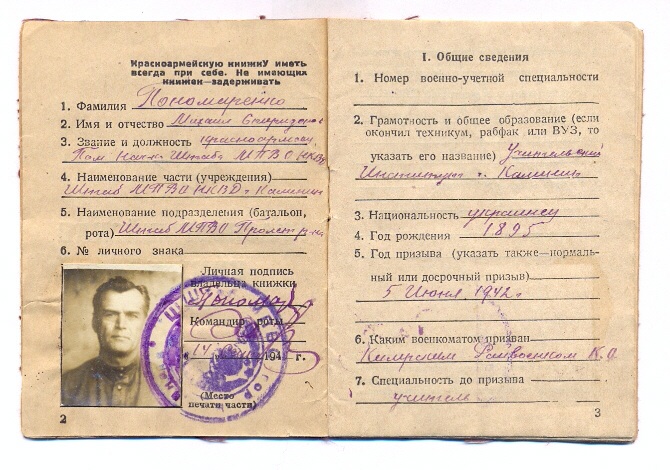 Красноармейскую книжку иметь
всегда при себе. Не имеющих
книжек—задерживать
1. Фамилия Пономаренко
2. Имя и отчество Михаил
3. Звание и должность красноармеец
Пом. Штаба МПВО НКВД
4. Наименование части (учреждения)
Штаб МПВО НКВД г. Калинин
5. Наименование подразделения (батальон,
рота) Штаб МПВО Пролет. р-на
6. № личного знака
Личная подпись
владельца книжки
Пономар
Командир роты
14 194 г.
(Место
печати части)
2
I. Общие сведения
1. Номер военно-учетной специальности
2. Грамотность и общее образование (если
окончил техникум, рабфак или ВУЗ, то
указать его название) Учительский
Институт г. Калинин
3. Национальность украинец
4. Год рождения 1895
5. Год призыва (указать также—нормаль-
ный или досрочный призыв)
5 Июня 1942 г.
6. Каким военкоматом призван
Кимрским Райвоенком К.О.
7. Специальность до призыва
учитель
3